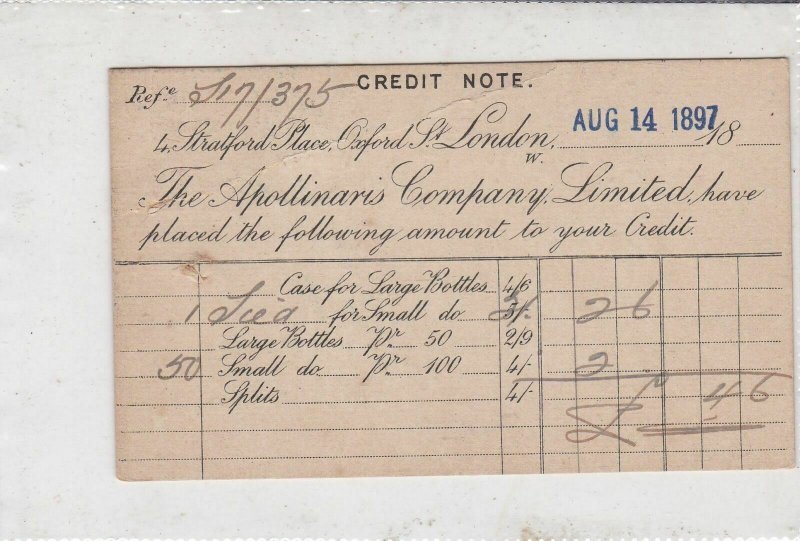 CREDIT NOTE.
Refce 717/375
AUG 14 1897
4, Stratford Place, Oxford St. London, W. 18
The Apollinaris Company, Limited, have
placed the following amount to your Credit.
Case for Large Bottles 4/6
1 for Small do 5/- 2 6
Large Bottles Pr 50 2/9
50 Small do Pr 100 4/- 2
Splits 4/-
£ 4 6